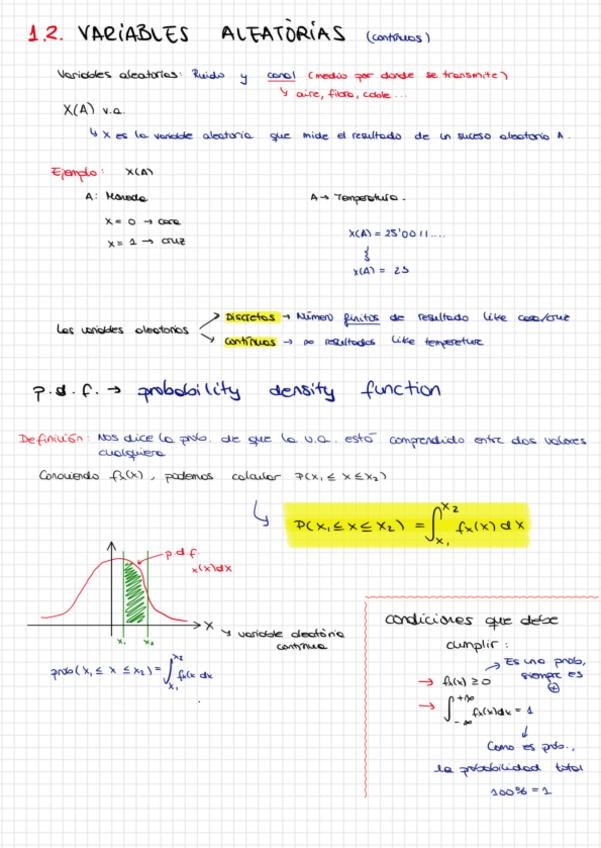 1.2. VARIABLES ALEATÒRIAS (continuas)
Variables aleatorias: Ruido y canal (medio por donde se transmite)
↳ aire, fibra, cable...
X(A) v.a.
↳ X es la variable aleatoria que mide el resultado de un suceso aleatorio A.
Ejemplo: X(A)
A: Moneda
X = 0 → cara
X = 1 → cruz
A → Temperatura.
X(A) = 25'0011....
X(A) = 25
Las variables aleatorias
Discretas → Número finitos de resultado like cara/cruz
Continuas → ∞ resultados like temperature
p.d.f. → probability density function
Definición: Nos dice la prob. de que la v.a. está comprendido entre dos valores
cualquiera
Conociendo fx(x), podemos calcular P(x₁ ≤ x ≤ x₂)
↳ P(x₁ ≤ x ≤ x₂) = ∫_{x₁}^{x₂} fx(x) dx
p.d.f.
x(x)dx
x₁ x₂
X
↳ variable aleatória
continua
prob(x₁ ≤ x ≤ x₂) = ∫_{x₁}^{x₂} fx(x dx
condiciones que debe
cumplir:
→ fx(x) ≥ 0
↗ Es una prob,
siempre es
⊕
→ ∫_{-∞}^{+∞} fx(x)dx = 1
↓
Como es prob.,
la probabilidad total
100% = 1